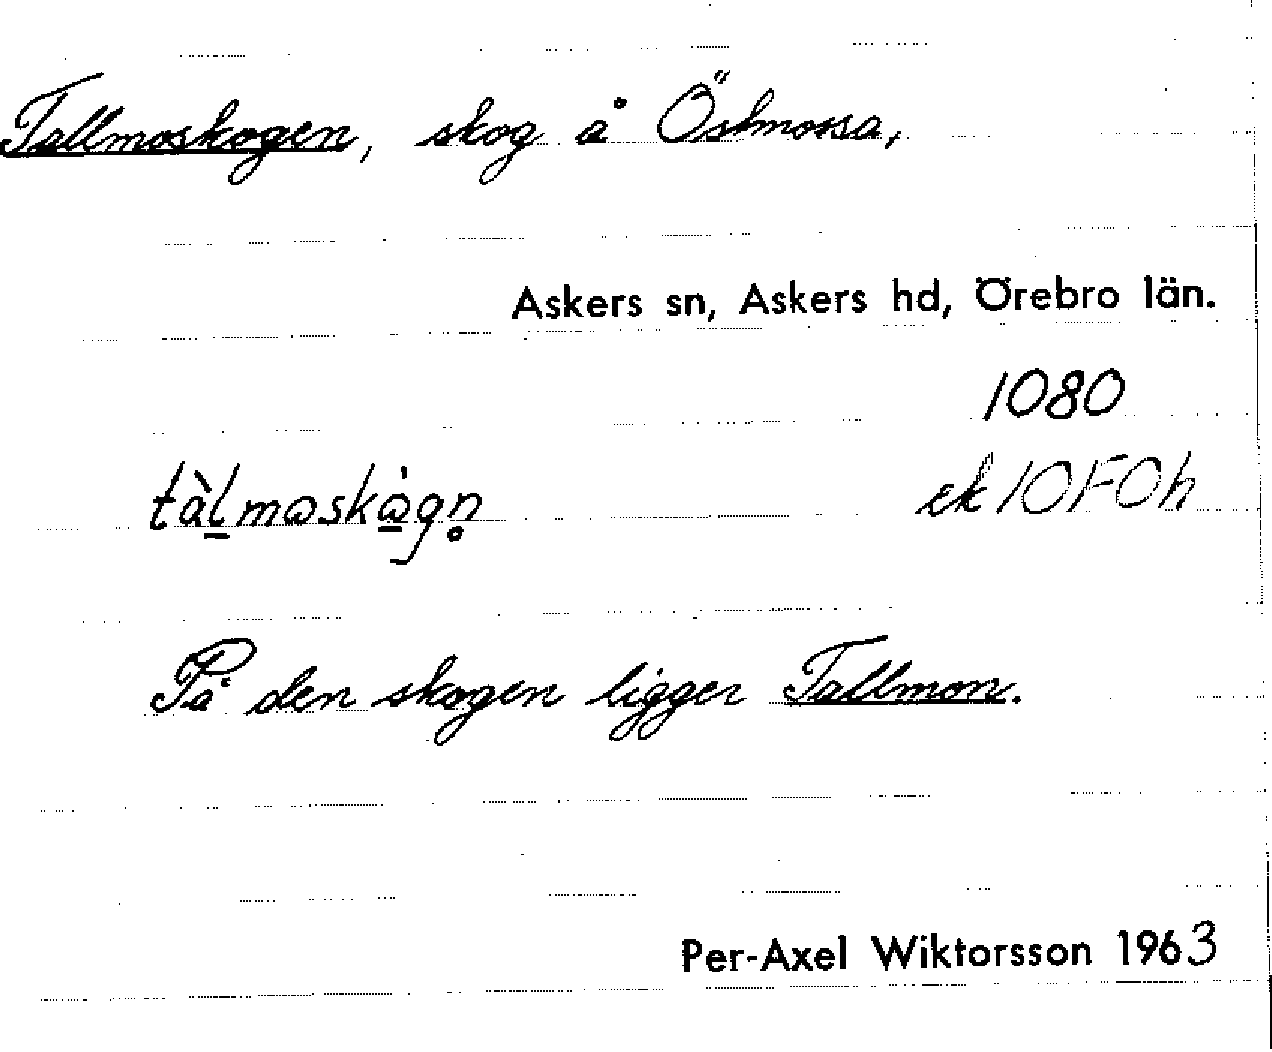 Tallmoskogen, skog å Östmossa,
Askers sn, Askers hd, Örebro län.
1080
tàlmoskògn ek 10F0h
På den skogen ligger Tallmon.
Per-Axel Wiktorsson 1963